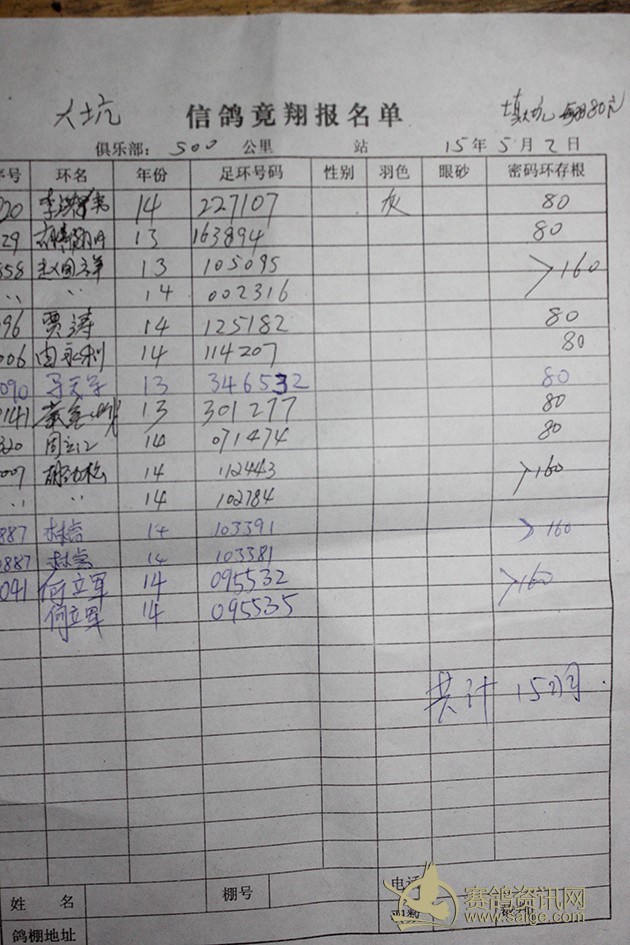 大坑 信鸽竟翔报名单 填大坑 每羽80元
俱乐部： 500 公里 站 15年5月2日
序号 环名 年份 足环号码 性别 羽色 眼砂 密码环存根
020 14 227107 灰 80
029 13 163894 80
858 赵国祥 13 105095 >160
〃 〃 14 002316
096 贾涛 14 125182 80
006 田永利 14 114207 80
090 马天军 13 346532 80
0141 13 301277 80
320 周立江 14 071474 80
007 14 112443 >160
〃 〃 14 102784
0887 14 103391 >160
0887 14 103381
041 何立军 14 095532 >160
何立军 14 095535
共计 15羽.
姓 名 棚号 电话
鸽棚地址 羽数
赛鸽资讯网
www.saige.com